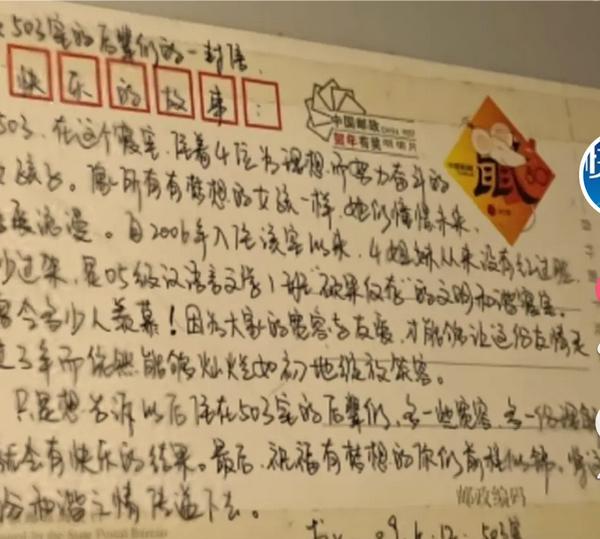 503室的后辈们的一封信
快乐的故事:
中国邮政
CHINA POST
贺年有奖明信片
503,在这个寝室,住着4位为理想而努力奋斗的
女孩子。像所有有梦想的女孩一样,她们憧憬未来,
浪漫。自2006年入住该室以来,4姐妹从来没有红过脸,
吵过架,是05级汉语言文学1班硕果仅存的文明和谐寝室。
令多少人羡慕!因为大家的宽容与友爱,才能够让这份友情走
过3年而依然能够灿烂如初地绽放笑容。
只是想告诉以后住在503室的后辈们,多一些宽容,多一份理解
就会有快乐的结果。最后,祝福有梦想的你们前程似锦。将这
份和谐之情传递下去。
邮政编码
by the State Postal Bureau
09.6.12. 503室